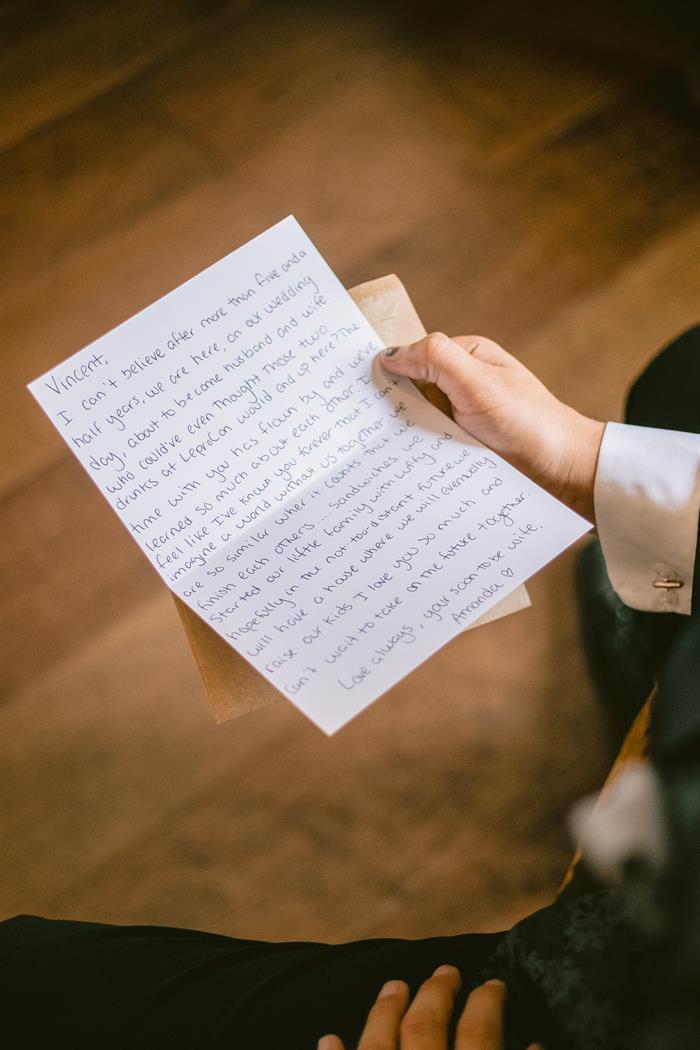 Vincent,
I can't believe after more than five and a
half years, we are here, on our wedding
day, about to become husband and wife.
who could've even thought those two
drunks at LepraCon would end up here? The
time with you has flown by and we've
learned so much about each other. I
feel like I've known you forever that I can't
imagine a world without us together. We
are so similar when it counts that we
finish each others... sandwiches. We
started our little family with Lofty and
hopefully in the not-too-distant future we
will have a house where we will eventually
raise our kids. I love you so much and
can't wait to take on the future together.
Love always, your soon to be wife,
Amanda ♡